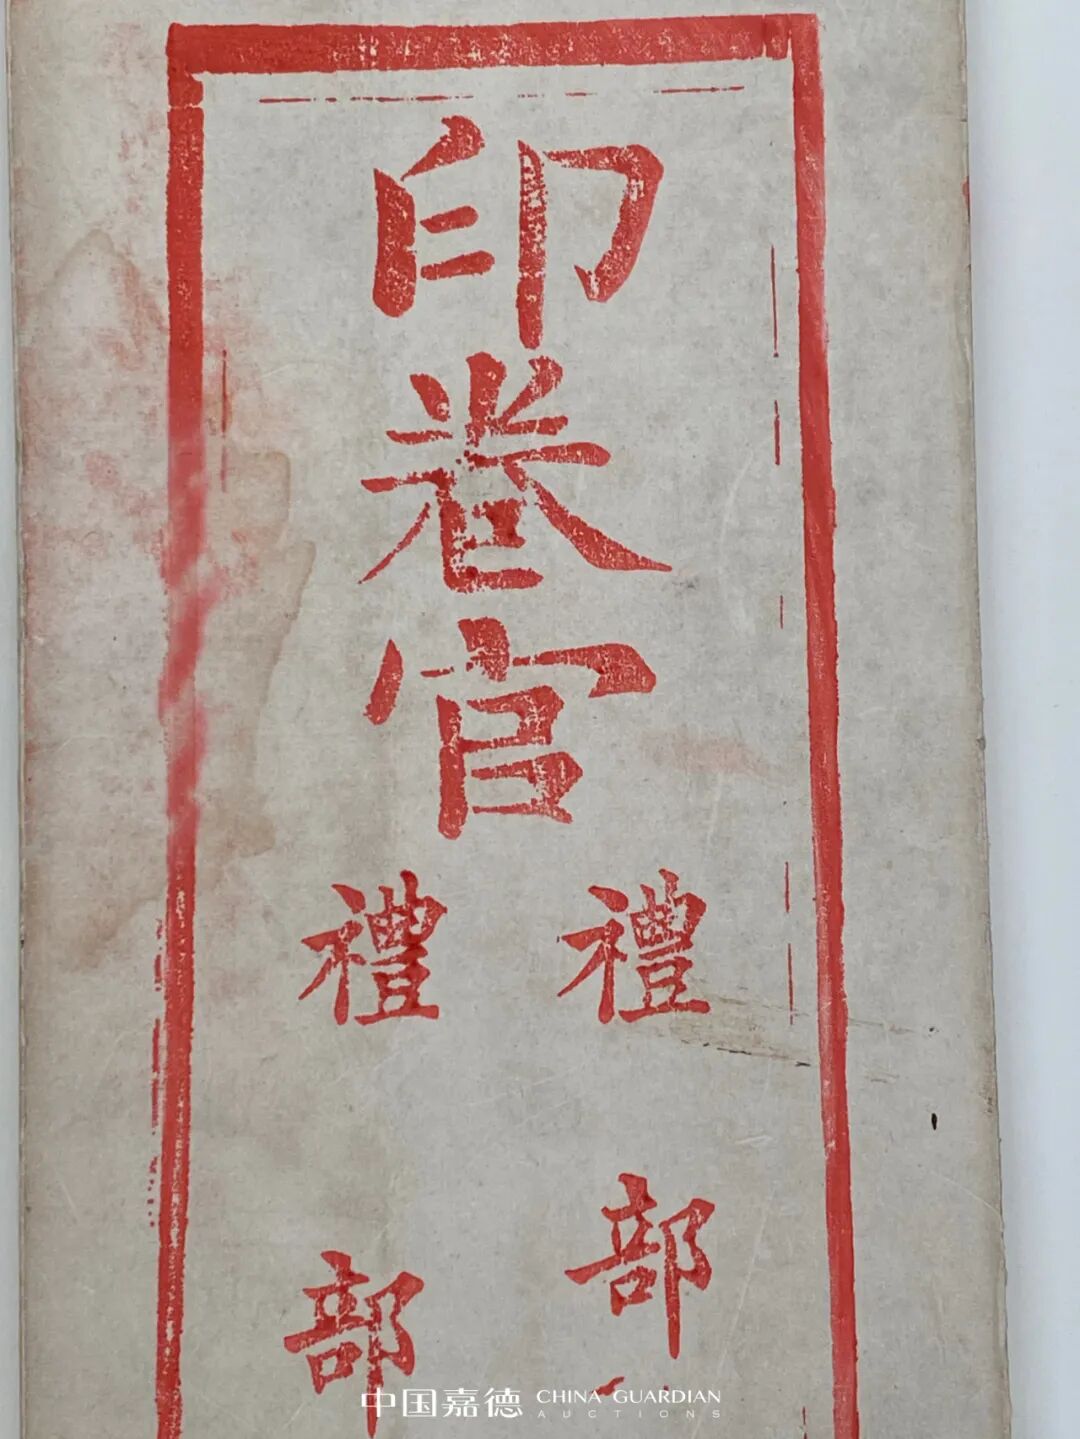 印卷官
禮部
禮部
中国嘉德 CHINA GUARDIAN
AUCTIONS